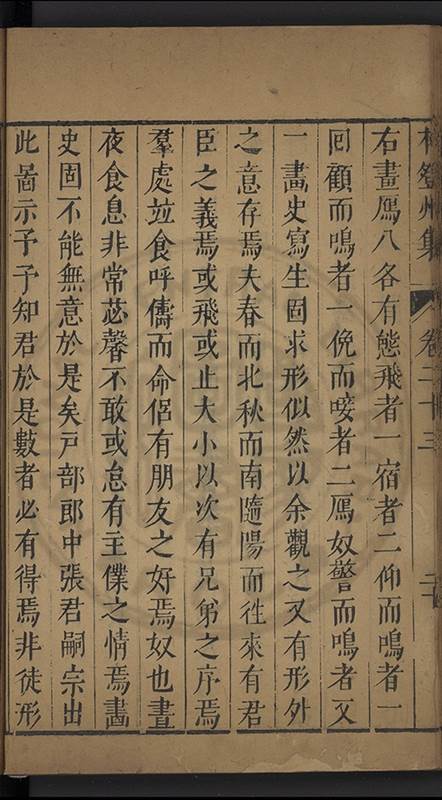 集 卷二十三
右畫鴈八各有態飛者一宿者二仰而鳴者一
回顧而鳴者一俛而唼者二鴈奴警而鳴者又
一畫史寫生固求形似然以余觀之又有形外
之意存焉夫春而北秋而南隨陽而徃來有君
臣之義焉或飛或止大小以次有兄弟之序焉
羣處竝食呼儔而命侶有朋友之好焉奴也晝
夜食息非常苾馨不敢或怠有主僕之情焉畵
史固不能無意於是矣戸部郎中張君嗣宗出
此啚示予予知君於是數者必有得焉非徒形